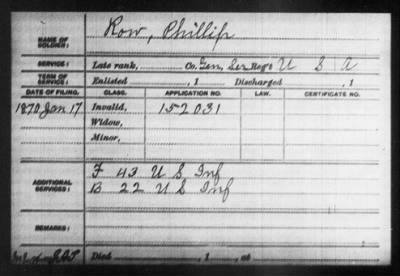 NAME OF SOLDIER: Row, Phillip
SERVICE: Late rank, Co. Gen. Ser. Reg't U S A
TERM OF SERVICE: Enlisted , 1 Discharged , 1
DATE OF FILING. CLASS. APPLICATION NO. LAW. CERTIFICATE NO.
1870 Jan 17 Invalid, 152031
Widow,
Minor,
ADDITIONAL SERVICES: F 43 U S Inf
B 22 U S Inf
REMARKS:
Died , 1 , at